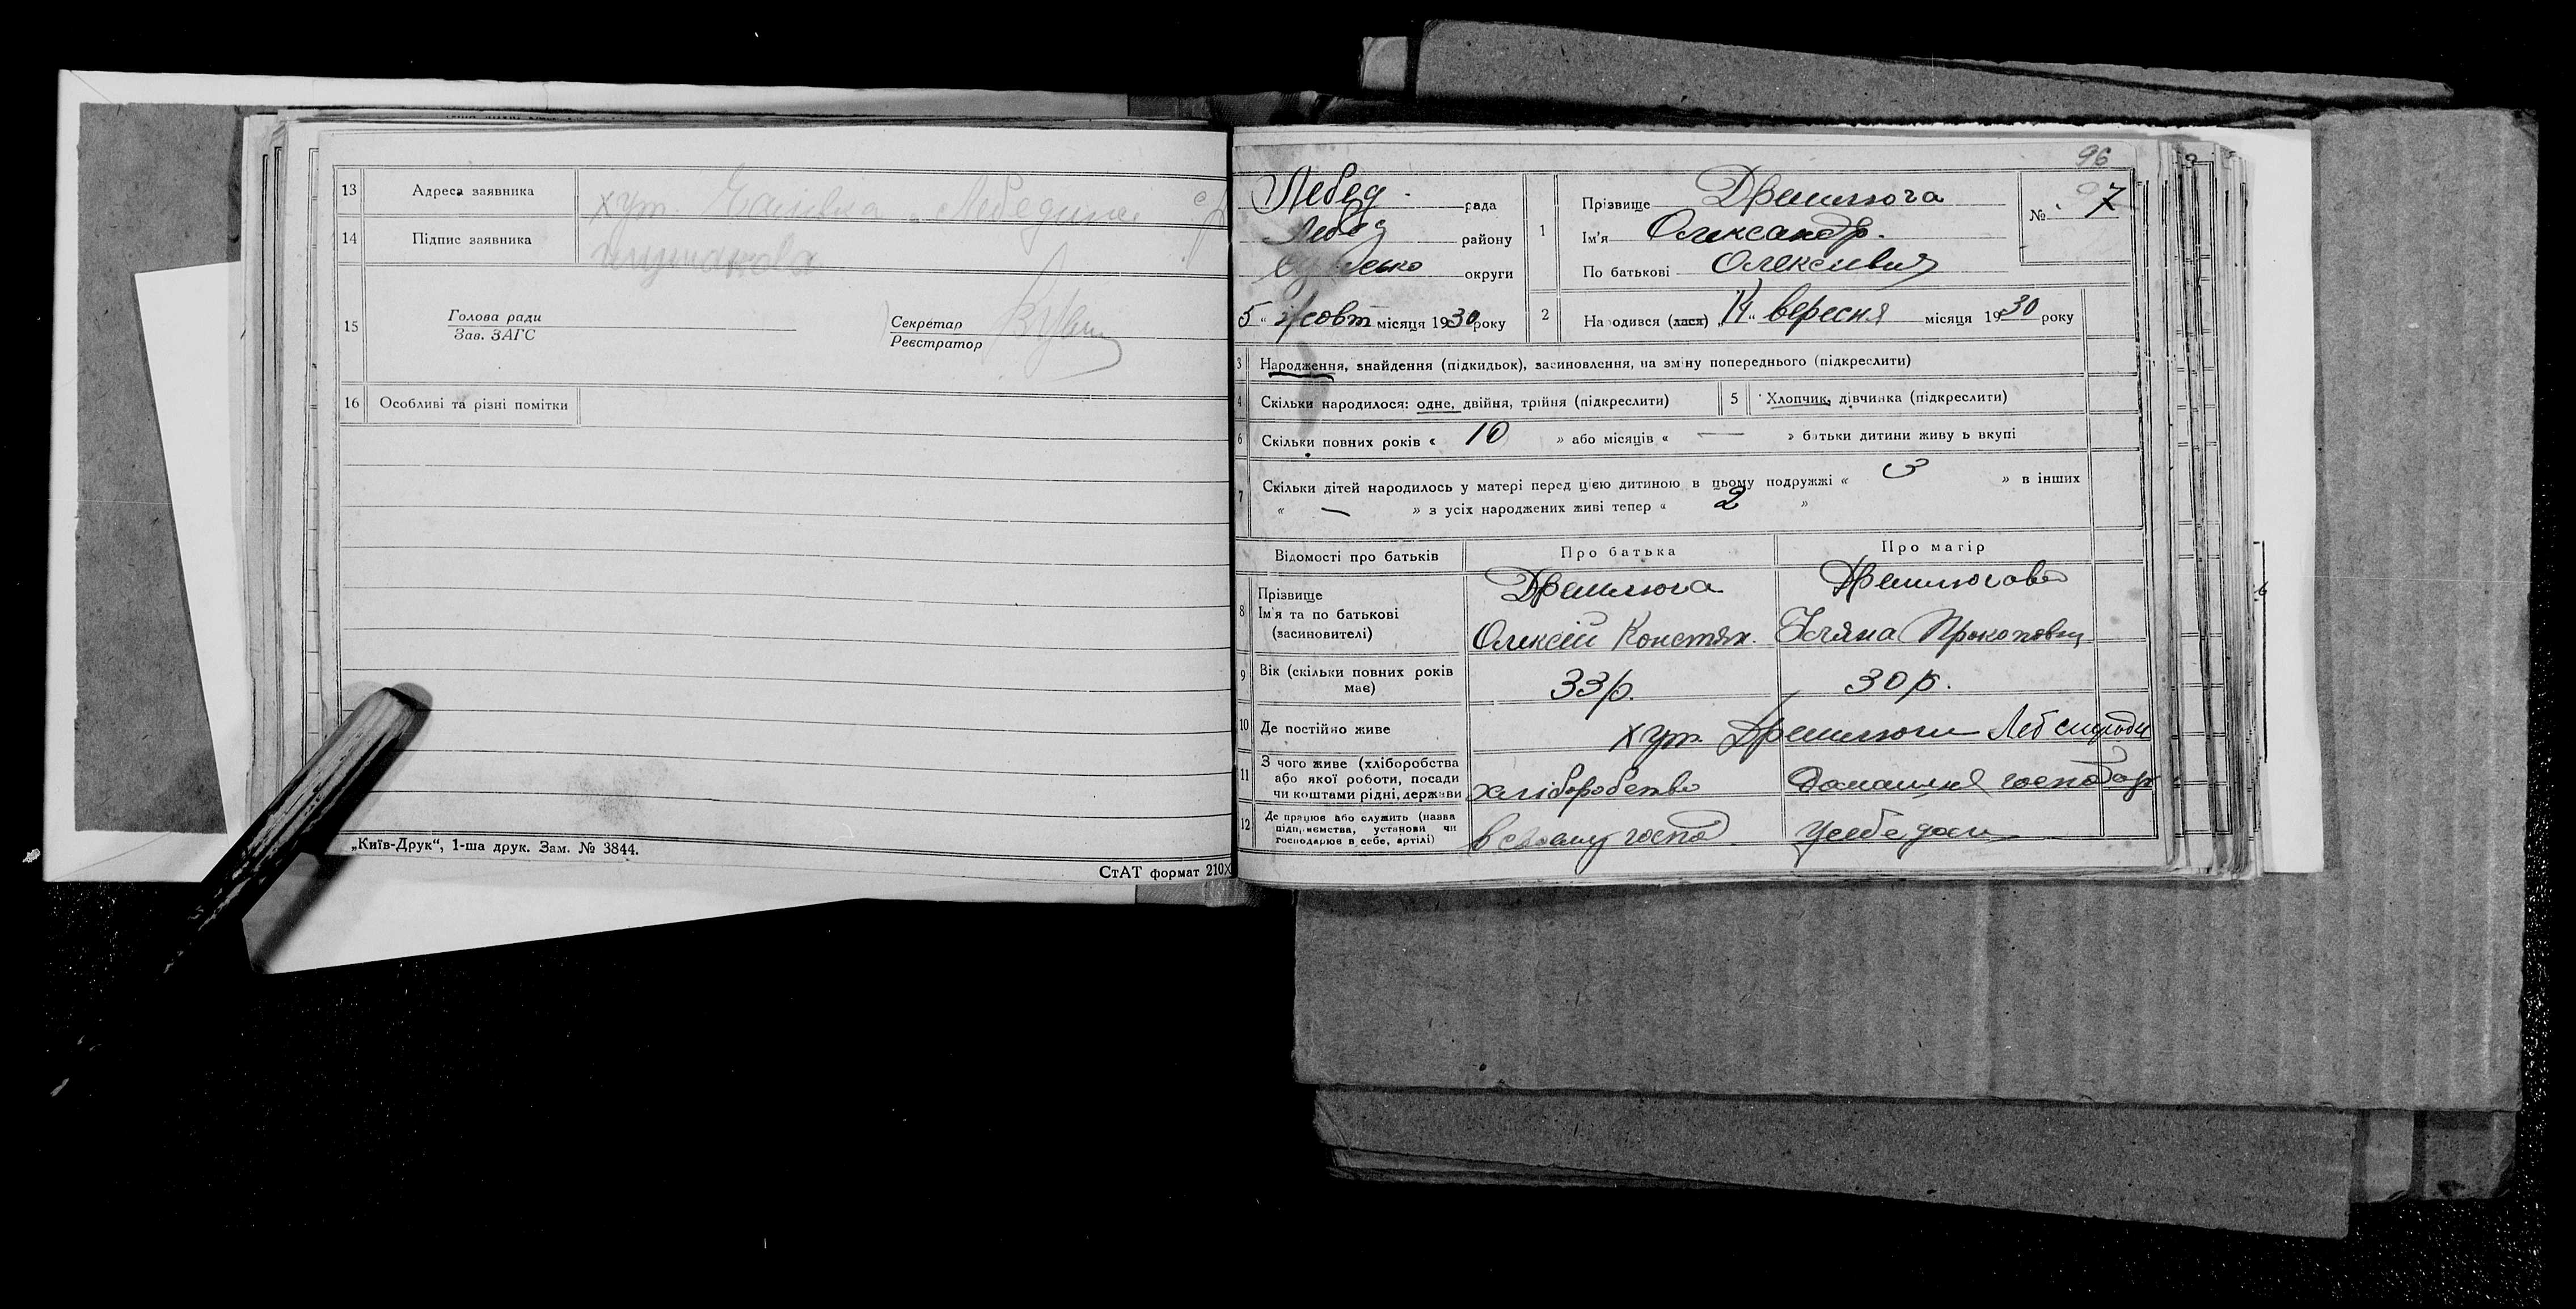 13 Адреса заявника хут. Лебединс с/р
14 Підпис заявника
15 Голова ради
Зав. ЗАГС
Секретар
Реєстратор
16 Особливі та різні помітки
„Київ-Друк“, 1-ша друк. Зам. № 3844.
СтАТ формат 210X
96
Лебед. рада
Лебед району
округи
5 „ жовт місяця 1930 року
1 Прізвище Дремлюга
Ім'я Олександр.
По батькові Олексієвич
№ 7
2 На одився (лася) „14“ вересня місяця 1930 року
3 Народження, знайдення (підкидьок), засиновлення, на зміну попереднього (підкреслити)
4 Скільки народилося: одне, двійня, трійня (підкреслити)
5 Хлопчик, дівчинка (підкреслити)
6 Скільки повних років « 10 » або місяців « — » батьки дитини живу ь вкупі
7 Скільки дітей народилось у матері перед цією дитиною в цьому подружжі « 3 » в інших
« — » з усіх народжених живі тепер « 2 »
Відомості про батьків Про батька Про матір
8 Прізвище
Ім'я та по батькові
(засиновителі)
Дремлюга
Олексій Констян.
Дремлюгова
Уляна Прокоповн
9 Вік (скільки повних років
має)
33 р. 30 р.
10 Де постійно живе хут. Дремлюги Леб
11 З чого живе (хліборобства
або якої роботи, посади
чи коштами рідні, держави
хліборобство домашня господар
12 Де працює або служить (назва
підприємства, установи чи
господарює в себе, артілі)
в своему госпо у себе дома